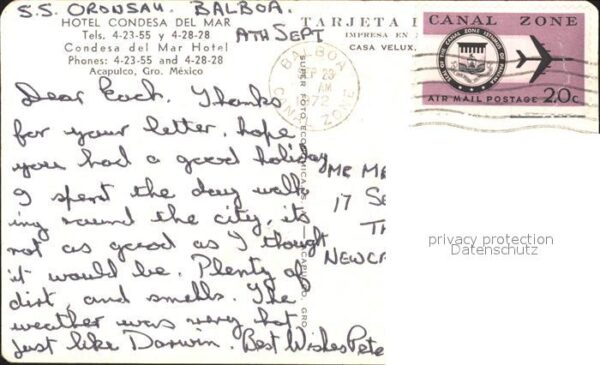 S.S. ORONSAY. BALBOA.
HOTEL CONDESA DEL MAR
Tels. 4-23-55 y 4-28-28
Condesa del Mar Hotel
Phones: 4-23-55 and 4-28-28
Acapulco, Gro. México
TARJETA
IMPRESA EN
CASA VELUX,
SUPER FOTO ECONOMICA
ACAPULCO, GRO.
BALBOA
SEP 23
AM
1972
CANAL ZONE
CANAL ZONE
AIR MAIL POSTAGE 20c.
SEPT
Dear Thanks
for your letter, hope
you had a good holiday
I spent the day walk
ing round the city, its
not as good as I thought
it would be. Plenty of
dirt and smells. The
weather was very hot
just like Darwin. Best Wishes Pete
MR
17
NEWCA
privacy protection
Datenschutz